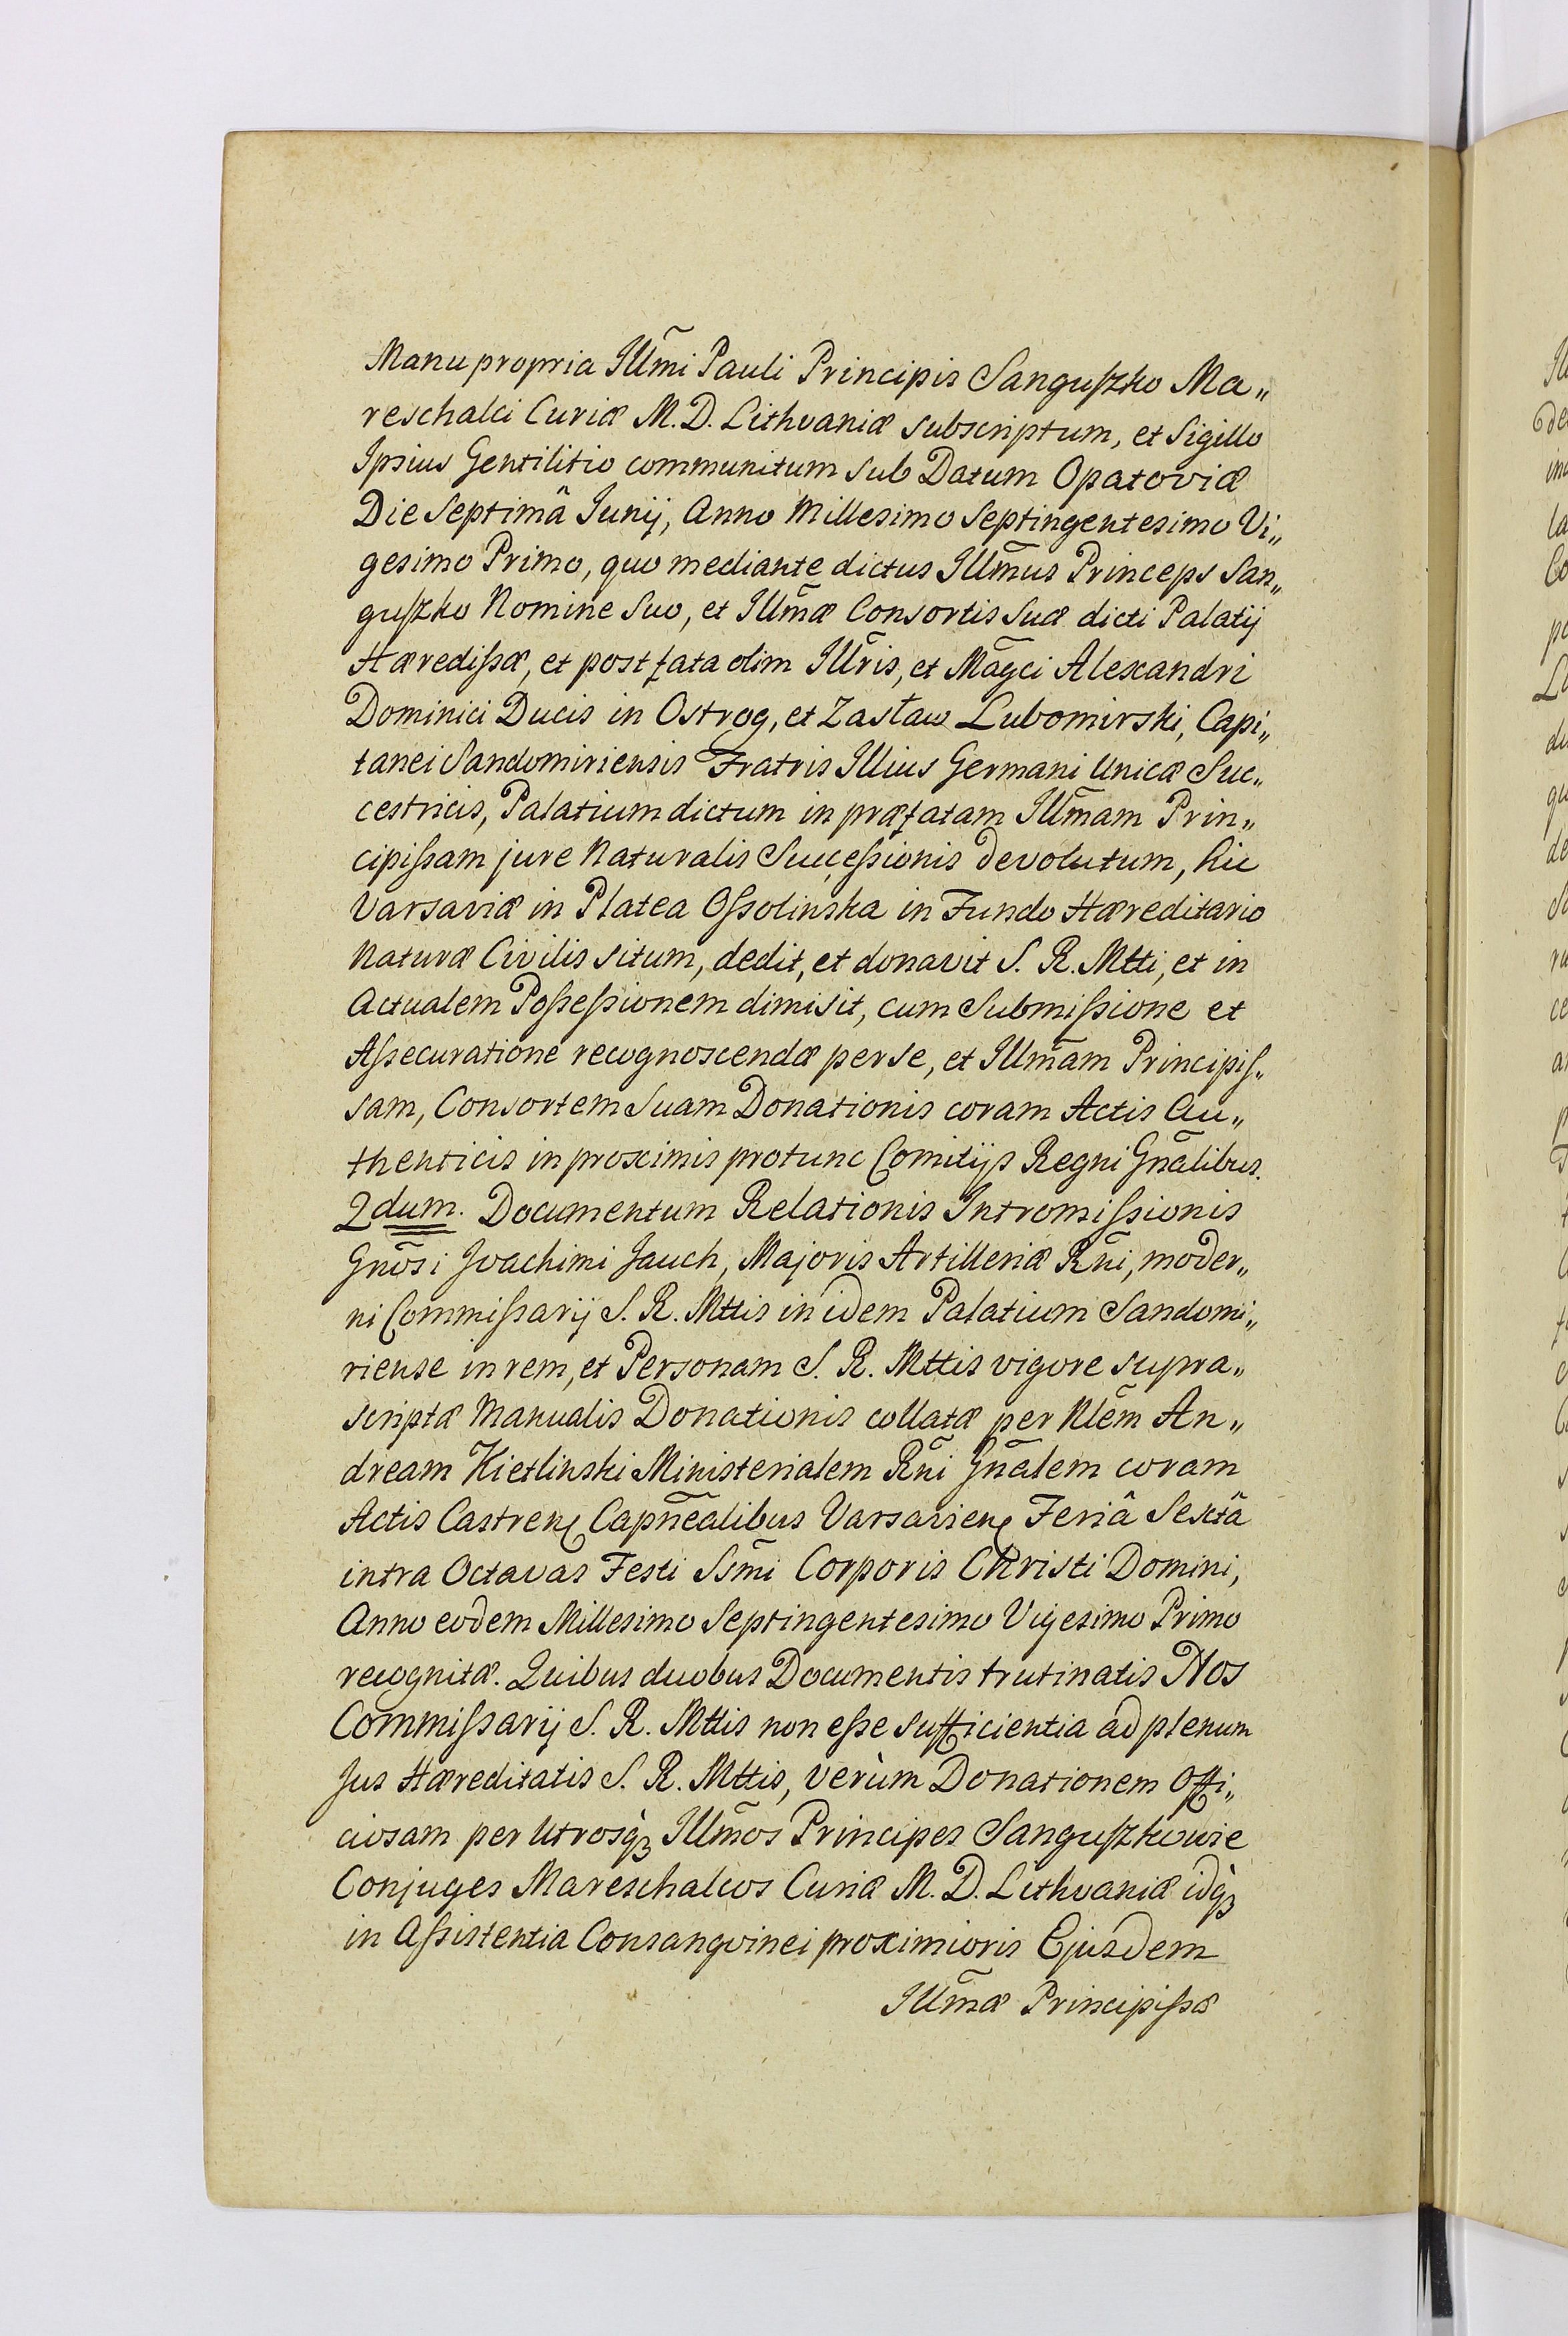 Manu propria Illm̃i Pauli Principis Sanguſzko Ma„
reschalci Curiæ M. D. Lithvaniæ subscriptum, et Sigillo
Ipsius Gentilitio communitum sub Datum Opatoviæ
Die Septimâ Junij, Anno Millesimo Septingentesimo Vi„
gesimo Primo, quo mediante dictus Illm̃us Princeps San„
guſzko Nomine Suo, et Illm̃æ Consortis Suæ dicti Palatij
Hærediſsæ, et post fata olim Illr̃is, et Mag̃ci Alexandri
Dominici Ducis in Ostrog, et Zasław Lubomirski, Capi„
tanei Sandomiriensis Fratris Illius Germani Unicæ Suc„
cestricis, Palatium dictum in præfatam Illm̃am Prin„
cipiſsam jure Naturalis Succeſsionis devolutum, hic
Varsaviæ in Platea Oſsolinska in Fundo Hæreditario
Naturæ Civilis situm, dedit, et donavit S. R. Mtti, et in
Actualem Poſseſsionem dimisit, cum Submiſsione et
Aſsecuratione recognoscendæ per se, et Illm̃am Principiſ„
sam, Consortem Suam Donationis coram Actis Au„
thenticis in proximis protunc Comitijs Regni Gñalibus.
2dum. Documentum Relationis Intromiſsionis
Gnõsi Joachimi Jauch, Majoris Artilleriæ Rñi, moder„
ni Commiſsarij S. R. Mttis in idem Palatium Sandomi„
riense in rem, et Personam S. R. Mttis vigore supra„
scriptæ Manualis Donationis collatæ per Nlẽm An„
dream Kietlinski Ministerialem Rñi Gñalem coram
Actis Castren. Capñealibus Varsavien. Feriâ Sextâ
intra Octavas Festi Ssm̃i Corporis Christi Domini,
Anno eodem Millesimo Septingentesimo Vigesimo Primo
recognitæ. Quibus duobus Documentis trutinatis Nos
Commiſsarij S. R. Mttis non eſse sufficientia ad plenum
Jus Hæreditatis S. R. Mttis, verùm Donationem Offi„
ciosam per Utrosq̀ꝫ Illm̃os Principes Sanguſzkowie
Conjuges Mareschalcos Curiæ M. D. Lithvaniæ idq̀ꝫ
in Aſsistentia Consangvinei proximioris Ejusdem
Illm̃æ Principiſsæ